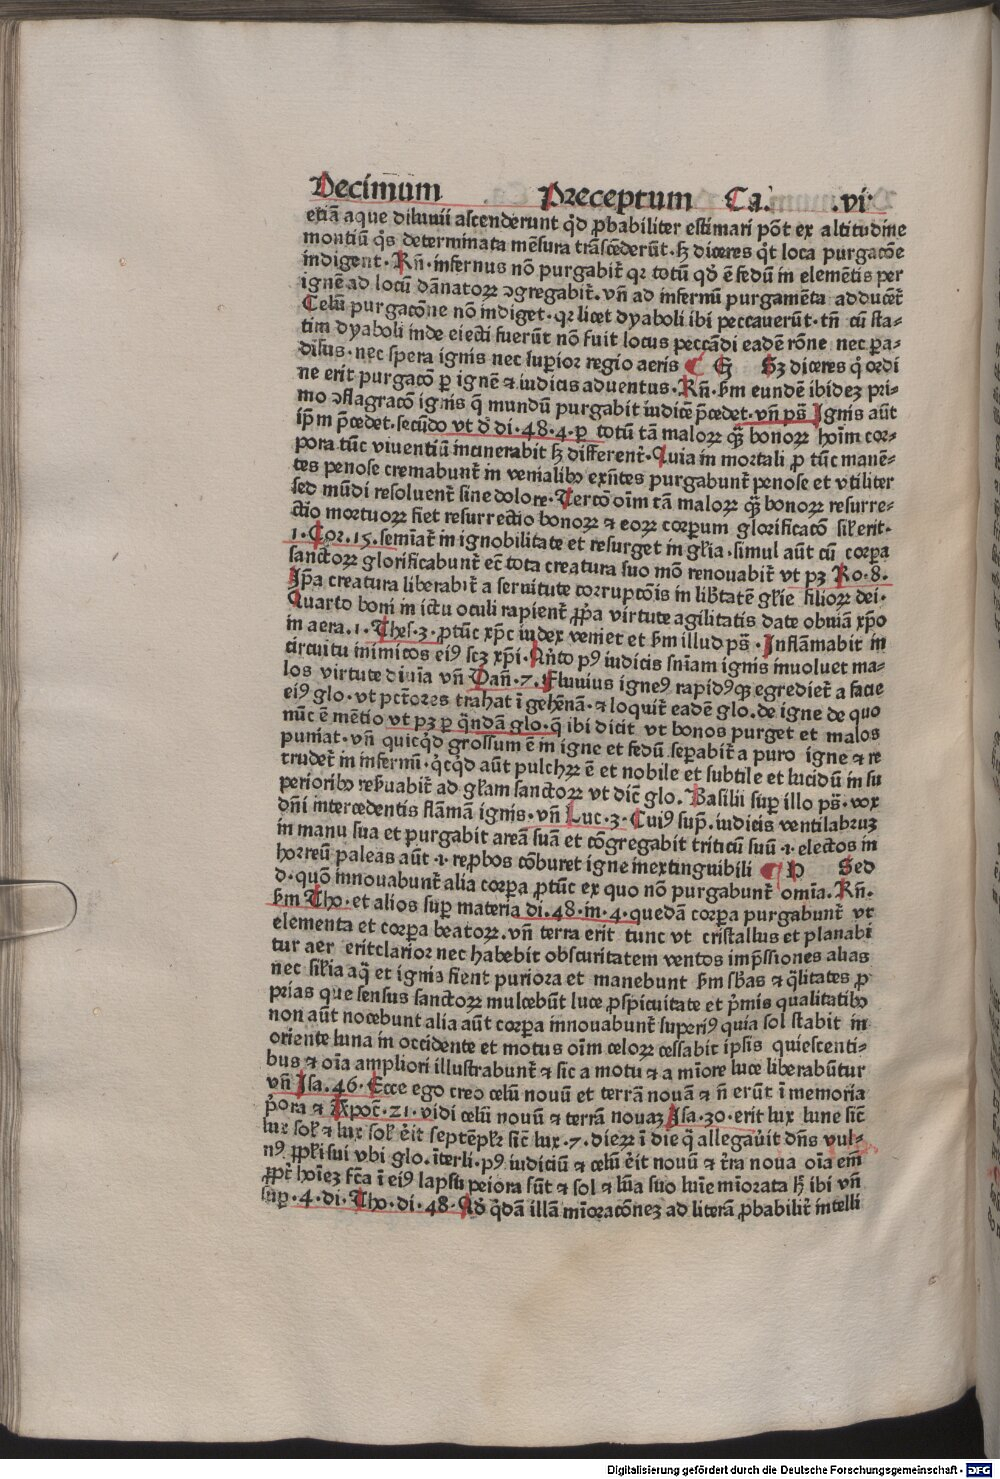 Decimum Preceptum Ca. .vi
etiã aque diluuii ascenderunt qd̕ ꝓbabiliter estimari põt ex altitudine
montiũ qͥs determinata mẽsura trãscẽderũt. sꝫ diceres qͥt loca purgacõe
indigent. Rñ. infernus nõ purgabit᷑ qꝛ totũ qd̕ ẽ fedũ in elemẽtis per
ignẽ ad locũ dãnatoꝝ ꝯgregabit᷑. vñ ad infernũ purgamẽta adducẽt᷑
Celũ purgacõne nõ indiget. qꝛ licet dyaboli ibi peccauerũt. tñ cũ sta⸗
tim dyaboli inde eiecti fuerũt nõ fuit locus peccãdi eadẽ rõne nec ꝑa⸗
disus. nec spera ignis nec suꝑior regio aeris ¶ G Sꝫ diceres qͥ ordi
ne erit purgacõ ꝑ ignẽ ⁊ iudicis aduentus. Rñ. ẜm eundẽ ibidez pri⸗
mo ꝯflagracõ ignis q̃ mundũ purgabit iudicẽ p̃cedet. vñ pš Ignis aũt
ip̃m p̃cedet. secũdo vt d̕ di. 48. 4. ꝑ totũ tã maloꝝ q̃ꝫ bonoꝝ hoĩm cor⸗
pora tũc viuentiũ incinerabit sꝫ different᷑. Quia in mortali ꝓ tũc manẽ⸗
tes penose cremabunt᷑ in venialibꝰ exñtes purgabunt᷑ penose et vtiliter
sed mũdi resoluent᷑ sine dolore. Tercõ oĩm tã maloꝝ q̃ꝫ bonoꝝ resurre⸗
ctio mortuoꝝ fiet resurrectio bonoꝝ ⁊ eoꝝ corꝑum glorificacõ sil̕ erit.
1. Cor. 15. semĩat᷑ in ignobilitate et resurget in gl̕ia. simul aũt cũ corꝑa
sanctoꝝ glorificabunt᷑ ec̃ tota creatura suo mõ renouabit᷑ vt pꝫ Ro. 8.
Ip̃a creatura liberabit᷑ a seruitute corrupcõis in lib̕tatẽ gl̕ie filioꝝ dei.
Quarto boni in ictu oculi rapient᷑ ꝓp̃a virtute agilitatis date obuiã xp̃o
in aera. 1. Thes. 3. ꝓtũc xp̃c iudex veniet et ẜm illud pš. Inflãmabit in
circuitu inimicos eiꝰ scꝫ xp̃i. Qñto pꝰ iudicis sñiam ignis inuoluet ma⸗
los virtute diuĩa vñ Dañ. 7. Fluuius igneꝰ rapidꝰqꝫ egrediet᷑ a facie
eiꝰ glo. vt pctõres trahat ĩ gehẽnã. ⁊ loquit᷑ eadẽ glo. de igne de quo
nũc ẽ mẽtio vt pꝫ ꝑ q̃ndã glo. q̃ ibi dicit vt bonos purget et malos
puniat. vñ quicqͥd grossum ẽ in igne et fedũ seꝑabit᷑ a puro igne ⁊ re
trudet᷑ in infernũ. qͥcqͥd aũt pulchꝝ ẽ et nobile et subtile et lucidũ in su
perioribꝰ reẜuabit᷑ ad gl̕iam sanctoꝝ vt dic̃ glo. Basilii suꝑ illo pš. vox
dñi intercedentis flãmã ignis. vñ Luc. 3. Cuiꝰ suꝑ. iudicis ventilabꝛuꝫ
in manu sua et purgabit areã suã et cõgregabit triticũ suũ .i. electos in
horreũ paleas aũt .i. reꝓbos cõburet igne inextinguibili ¶ D Sed
d. quõ innouabunt᷑ alia corꝑa ꝓtũc ex quo nõ purgabunt᷑ omĩa. Rñ.
ẜm Tho. et alios suꝑ materia di. 48. in. 4. quedã corꝑa purgabunt᷑ vt
elementa et corꝑa beatoꝝ. vñ terra erit tunc vt cristallus et planabi
tur aer erit clarior nec habebit obscuritatem ventos imp̃ssiones alias
nec sil̕ia aq̃ et ignis fient puriora et manebunt ẜm sb̃as ⁊ q̃litates ꝓ
prias que sensus sanctoꝝ mulcebũt luce ꝑspicuitate et p̃mis qualitatibꝰ
non aũt nocebunt alia aũt corꝑa innouabunt᷑ superiꝰ quia sol stabit in
oriente luna in occidente et motus oĩm celoꝝ cessabit ipsis quiescenti⸗
bus ⁊ oĩa ampliori illustrabunt᷑ ⁊ sic a motu ⁊ a mĩore luce liberabũtur
vñ Isa. 46. Ecce ego creo celũ nouũ et terrã nouã ⁊ ñ erũt ĩ memoria
pͥora ⁊ Apoc̃. 21. vidi celũ nouũ ⁊ terrã nouaꝫ Isa. 30. erit lux lune sic̃
lux sol̕ ⁊ lux sol̕ e̕it septẽpl̕r sic̃ lux. 7. dieꝝ ĩ die q̃ allegau̕it dñs vul⸗
nꝰ ꝓpl̕i sui vbi glo. ĩterli. pꝰ iudiciũ ⁊ celũ e̕it nouũ ⁊ t̕ra noua oĩa em̃
ꝓpt᷑ hoĩeꝫ fc̃a ĩ eiꝰ lapsu peiora sũt ⁊ sol ⁊ lũa suo luĩe mĩorata sꝫ ibi vñ
suꝑ. 4. di. Tho. di. 48. Qd̕ q̃dã illã mĩoracõneꝫ ad literã ꝓbabilit᷑ intelli
Digitalisierung gefördert durch die Deutsche Forschungsgemeinschaft - DFG